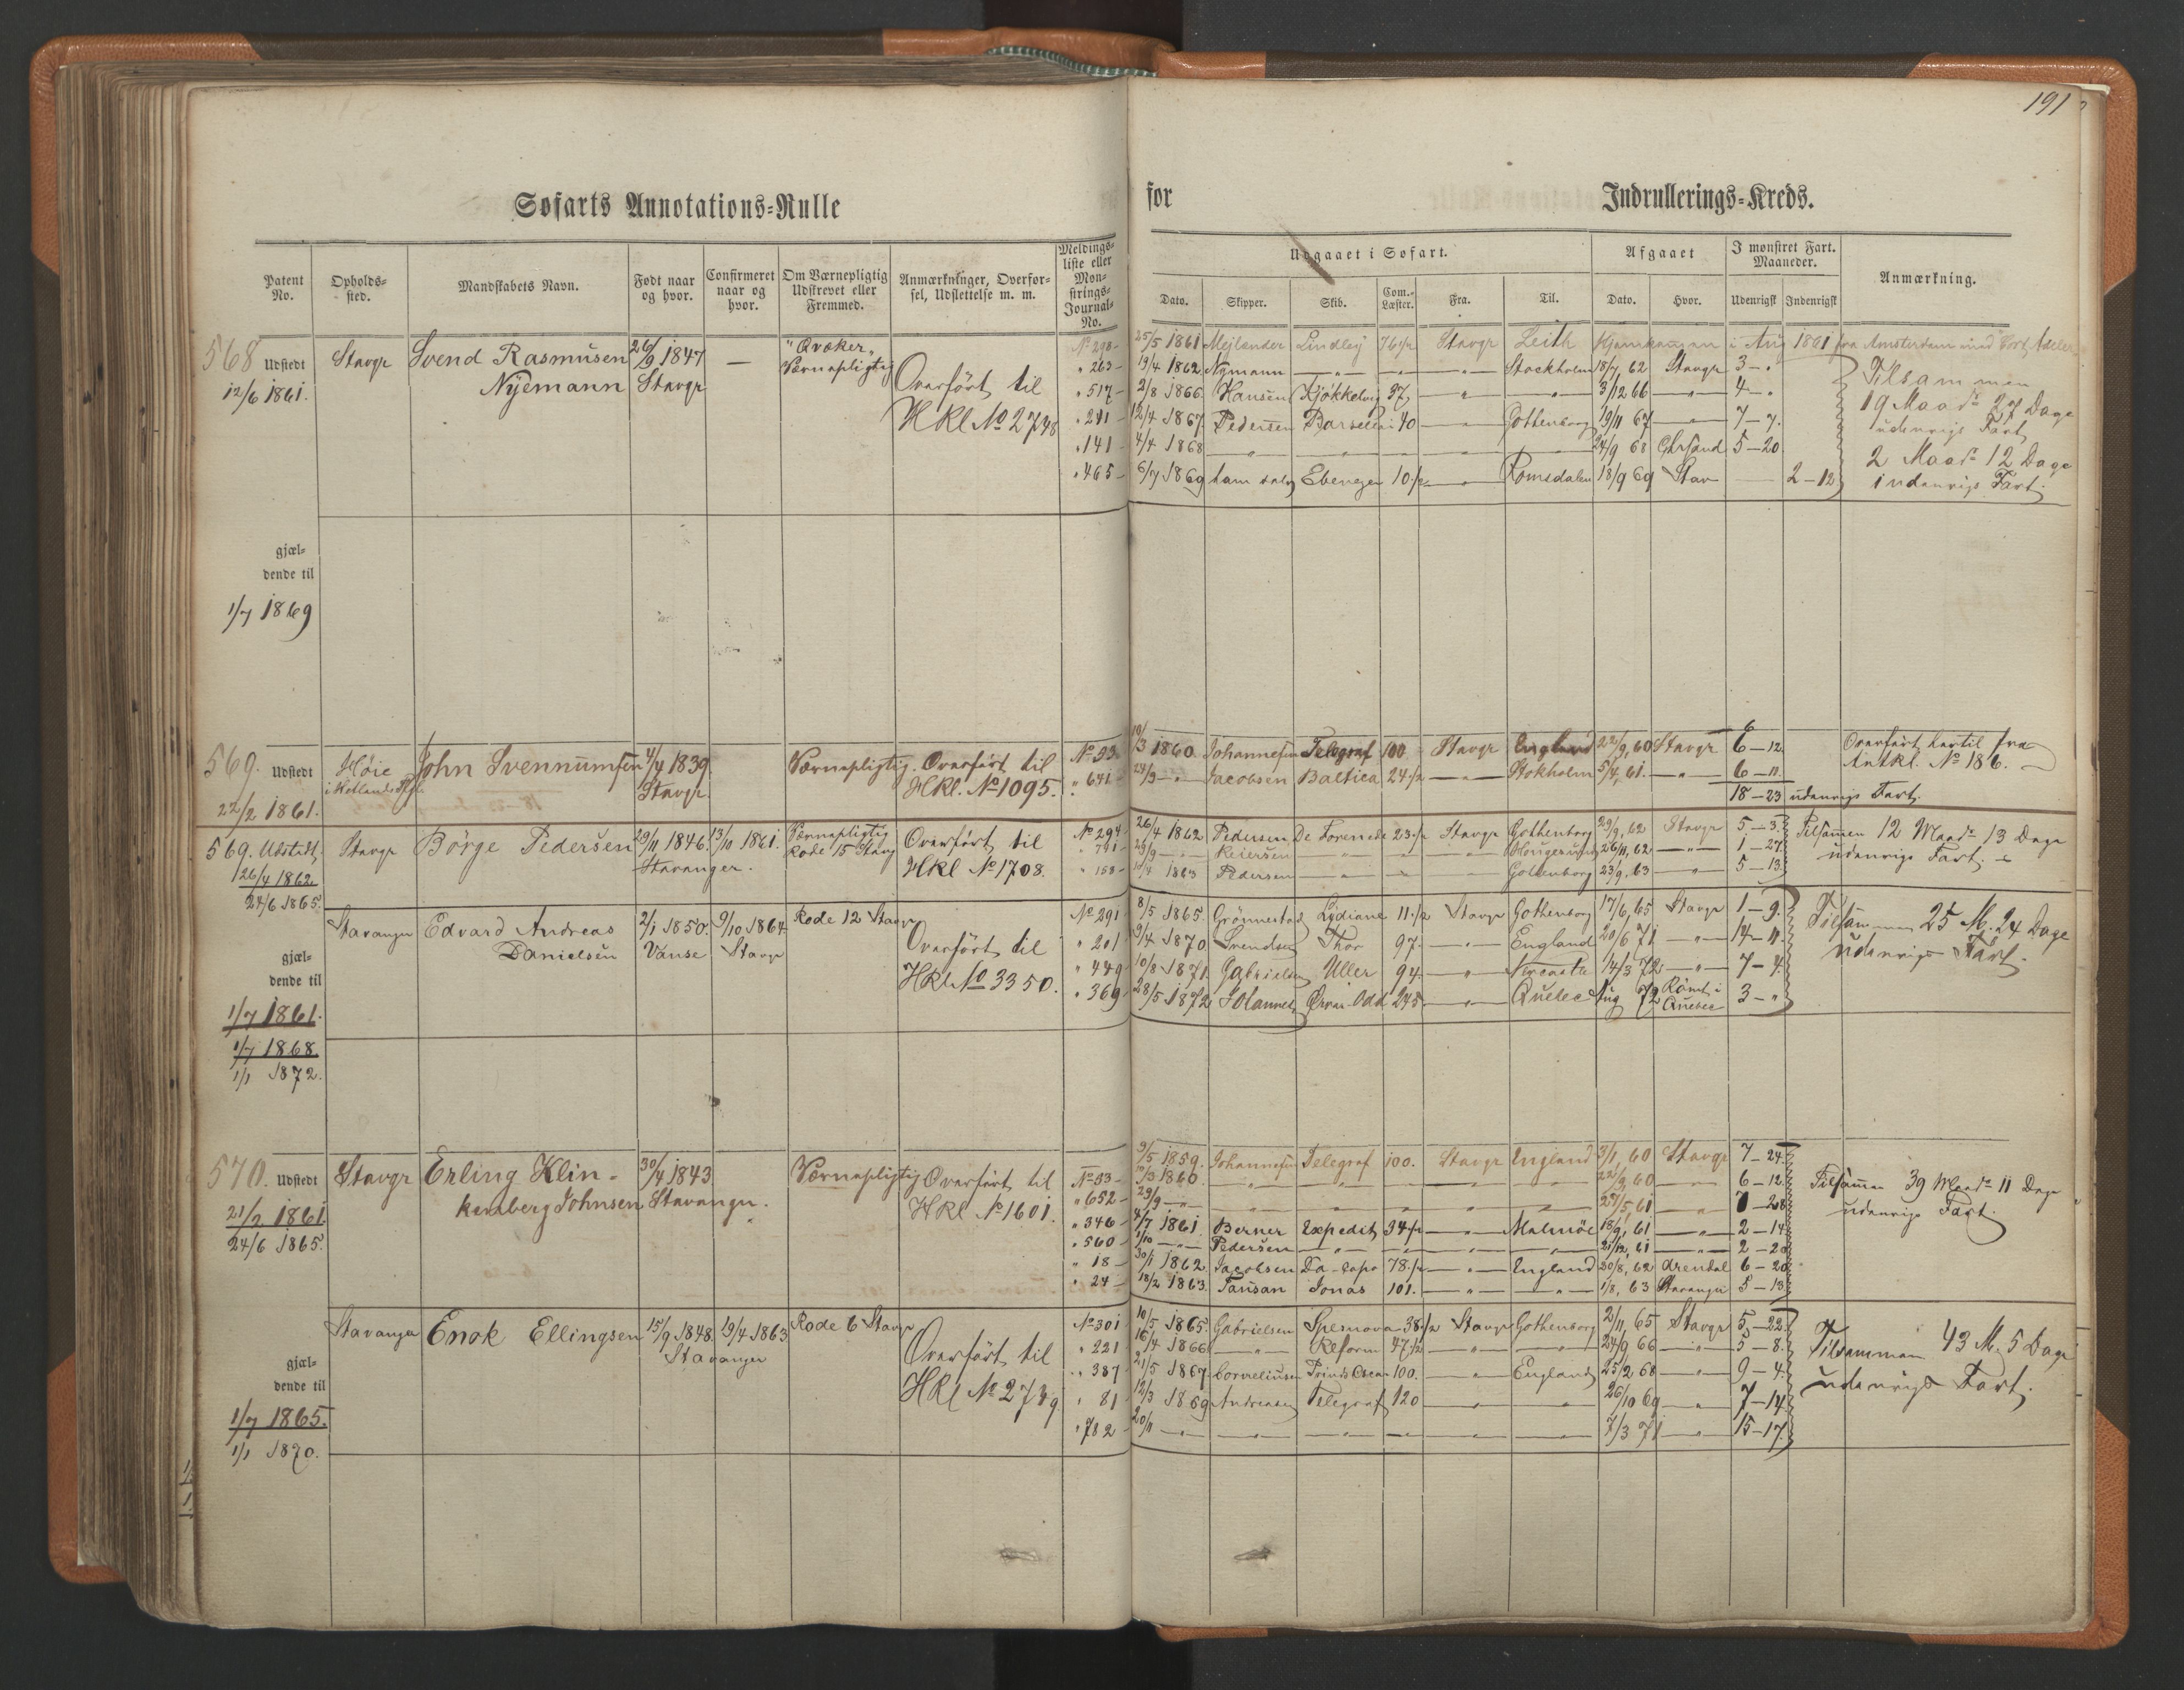 191
Søfarts Annotations=Rulle for Indrullerings=Kreds.
Patent No. | Opholds-sted. | Mandskabets Navn. | Født naar og hvor. | Confirmeret naar og hvor. | Om Værnepligtig Udskrevet eller Fremmed. | Anmærkninger, Overførsel, Udslettelse m. m. | Meldings-liste eller Mønstrings-Journal-No.
Udgaaet i Søfart. | Afgaaet | I mønstret Fart. Maaneder. | Anmærkning.
Dato. | Skipper. | Skib. | Com.-Læster. | Fra. | Til. | Dato. | Hvor. | Udenrigsk | Indenrigsk
568 Udstedt 12/6 1861.
Stavgr Svend Rasmusen 26/9 1847 — "Qvæker"
Nyemann Stavgr Værnepligtig
Overført til
HKl No 2748
No 298 25/5 1861 Mejlænder Lindley 76 1/2 Stavgr Leith i Aug 1861 fra Amsterdam
" 263 19/4 1862 Nymann —"— —"— —"— Stockholm 18/7 62 Stavgr 3 — "
" 517 2/8 1866 Hansen Kjøkkelvig 37 —"— —"— 3/12 66 —"— 4 — "
" 241 12/4 1867 Pedersen 40 —"— Gothenborg 19/11 67 —"— 7 — 7.
" 141 4/4 1868 —"— —"— —"— —"— —"— 24/9 68 Chrsand 5 — 20
" 465 6/7 1869 ham selv Ebenezer 10 1/2 —"— Romsdalen 18/9 69 Stav — 2 — 12
Tilsammen
19 Maadr 27 Dage
udenrigs Fart
2 Maadr 12 Dage
indenrigs Fart.
gjæl-
dende til
1/7 1869
569. Udstedt 22/2 1861.
Høie John Svennumsen 4/4 1839. Værnepligtig. Overført til
Stavgr. HKl. No 1095.
No 53 10/3 1860. Johannesen Telegraf 100 Stavgr England 22/9, 60 Stavgr 6 — 12
" 641 24/9 —"— Jacobsen Baltica 24 1/2 —"— Stokholm 5/4, 61. —"— 6 — 11.
18 — 23 udenrigs Fart.
Overført hertil fra
Antkl. No 186.
569. Udstedt
26/4 1862.
24/6 1865.
Stavgr Børge Pedersen 29/11 1846. 13/10 1861. Værnepligtig Overført til
Stavanger. Rode 15 Stavgr HKl No 1708.
No 294 26/4 1862 Pedersen De Forenede 23 1/2 Stavgr Gothenborg 29/9, 62 Stavgr 5 — 3.
" 791 29/9 —"— Reiersen —"— —"— —"— Hougesund 26/11, 62 —"— 1 — 27
" 158 10/4 1863 Pedersen —"— —"— —"— Gothenborg 23/9, 63 —"— 5 — 13
Tilsamen 12 Maadr 13 Dage
udenrigs Fart.
Stavanger Edvard Andreas 2/1 1850. 9/10 1864 Rode 12 Stavgr
Danielsen Vanse Stavgr
Overført til
HKl No 3350.
No 291 8/5 1865. Grønnestad Lydiane 11 1/2 Stavgr Gothenborg 17/6, 65 Stavgr 1 — 9.
" 201 9/4 1870 Svendsen Thor 97. —"— England 20/6 71 —"— 14 — 11.
" 449 10/8 1871. Gabrielsen Uller 94 —"— Newcastle 14/3 72 —"— 7 — 4.
" 369 28/5 1872 Ørvar Odd 245 —"— Quebec Aug 72 Rømt i Quebec 3 — "
Tilsammen 25 M. 24 Dage
udenrigs Fart.
gjæl-
dende til
1/7 1861.
1/7 1868.
1/1 1872.
570. Udstedt
21/2 1861
24/6 1865.
Stavgr Erling Klin- 30/4 1843 Værnepligtig Overført til
kenberg Johnsen Stavanger. HKl No 1601.
9/5 1859. Johannesen Telegraf 100. Stavgr England 3/1, 60 Stavgr 7 — 24
No 53 10/3 1860 —"— —"— —"— —"— 22/9, 60 —"— 6 — 12
" 652 29/9 —"— —"— —"— —"— —"— 29/5, 61 —"— 7 — 28
" 346 4/7 1861 Berner Expedit 34 1/2 —"— Malmöe 18/9, 61 —"— 2 — 14
" 560 1/10 —"— Pedersen —"— —"— —"— —"— 21/12, 61 —"— 2 — 20
" 18 30/1 1862. Jacobsen Da-Capo 78 1/2 —"— England 20/8, 62 Arendal 6 — 20
" 24 18/2 1863. Fausan Jonas 101. —"— —"— 1/8, 63 Stavanger 5 — 13
Tilsamen 39 Maadr 11 Dage
udenrigs Fart.
Stavanger Enok Ellingsen 15/9 1848. 19/4 1863 Rode 6 Stavgr
Stavanger
Overført til
HKl No 2739
No 301 10/5 1865. Gabrielsen Spesnova 38 1/2 Stavgr Gothenborg 2/11, 65 Stavgr 5 — 22
" 221 16/4 1866 —"— Reform 47 1/2 —"— —"— 24/9 66 —"— 5 — 8.
" 387 21/5 1867 Corneliusen Prinds Oscar 100. —"— England 25/2 68 —"— 9 — 4.
" 81 12/3 1869 Andreasen Telegraf 120 —"— —"— 26/10 69 —"— 7 — 14
" 782 20/11 —"— —"— —"— —"— —"— —"— 7/3 71 —"— 15 — 17.
Tilsammen 43 M. 5 Dage
udenrigs Fart.
gjæl-
dende til
1/7 1865.
1/1 1870.